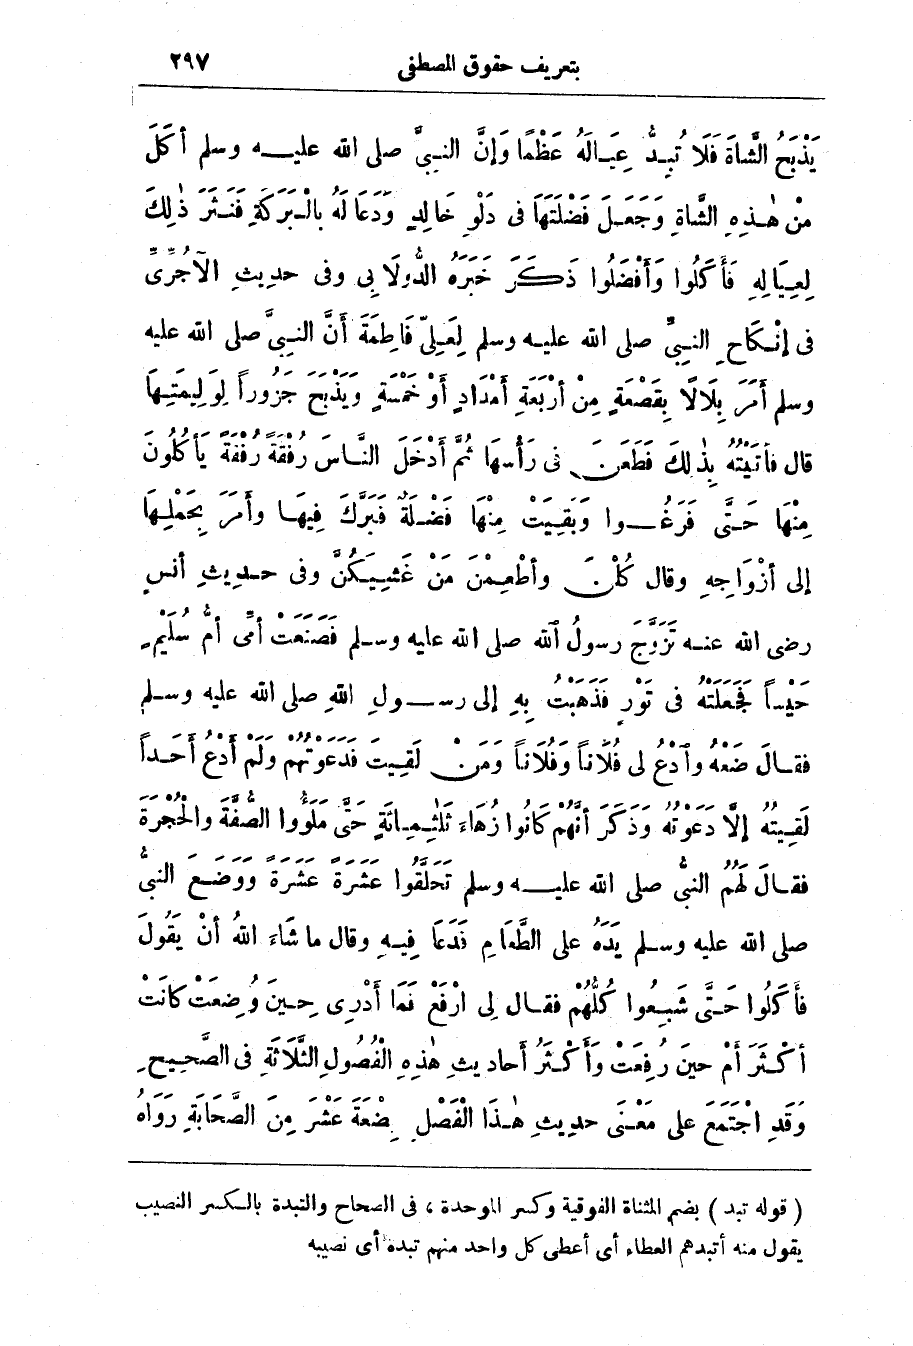 بتعريف حقوق المصطفى ٢٩٧
يَذْبَحُ الشَّاةَ فَلَا تُبِدُّ عِيَالَهُ عَظْمًا وَإِنَّ النَّبِيَّ صلى الله عليه وسلم أَكَلَ
مِنْ هٰذِهِ الشَّاةِ وَجَعَلَ فَضْلَتَهَا فى دَلْوِ خَالِدٍ وَدَعَا لَهُ بالْبَرَكَةِ فَنَثَرَ ذٰلِكَ
لِعِيَالِهِ فَأَكَلُوا وَأَفْضَلُوا ذَكَرَ خَبَرَهُ الدُّولَابِى وفى حديثِ الآجُرِّىِّ
فى إنْكَاحِ النبىِّ صلى الله عليه وسلم لِعَلِىّ فَاطِمَةَ أَنَّ النبىَّ صلى الله عليه
وسلم أَمَرَ بِلَالًا بِقَصْعَةٍ مِنْ أَرْبَعَةِ أَمْدَادٍ أَوْ خَمْسَةٍ وَيَذْبَحَ جَزُوراً لِوَلِيمَتِهَا
قال فأتَيْتُهُ بِذٰلِكَ فَطَعَنَ فى رَأْسِهَا ثُمَّ أَدْخَلَ النَّاسَ رُفْقَةً رُفْقَةً يَأْكُلُونَ
مِنْهَا حَتَّى فَرَغُوا وَبَقِيَتْ مِنْهَا فَضْلَةٌ فَبَرَّكَ فِيهَا وأَمَرَ بِحَمْلِهَا
إلى أَزْوَاجِهِ وقال كُلْنَ وأَطْعِمْنَ مَنْ غَشِيَكُنَّ وفى حديثِ أنسٍ
رضى الله عنه تَزَوَّجَ رسولُ اللهِ صلى الله عليه وسلم فَصَنَعَتْ أُمِّى أُمُّ سُلَيْمٍ
حَيْساً فَجَعَلَتْهُ فى تَوْرٍ فَذَهَبْتُ بِهِ إلى رسولِ اللهِ صلى الله عليه وسلم
فقالَ ضَعْهُ وادْعُ لى فُلَاناً وَفُلَاناً وَمَنْ لَقِيتَ فَدَعَوْتُهُمْ وَلَمْ أَدْعُ أَحَداً
لَقِيتُهُ إلَّا دَعَوْتُهُ وَذَكَرَ أَنَّهُمْ كَانُوا زُهَاءَ ثَلَثِمِائَةٍ حَتَّى مَلَؤُوا الصُّفَّةَ والْحُجْرَةَ
فقالَ لَهُمُ النبىُّ صلى الله عليه وسلم تَحَلَّقُوا عَشْرَةً عَشْرَةً وَوَضَعَ النبىُّ
صلى الله عليه وسلم يَدَهُ على الطَّعَامِ فَدَعَا فِيهِ وقال ما شَاءَ اللهُ أَنْ يَقُولَ
فَأَكَلُوا حَتَّى شَبِعُوا كُلُّهُمْ فقال لِى ارْفَعْ فَمَا أَدْرِى حِينَ وُضِعَتْ كانَتْ
أَكْثَرَ أَمْ حينَ رُفِعَتْ وَأَكْثَرُ أَحادِيثِ هٰذِهِ الْفُصُولِ الثَّلَاثَةِ فى الصَّحِيحِ
وَقَدِ اجْتَمَعَ على مَعْنَى حديثِ هٰذَا الْفَصْلِ بِضْعَةَ عَشَرَ مِنَ الصَّحَابَةِ رَوَاهُ
( قوله تبد ) بضم المثناة الفوقية وكسر الموحدة ، فى الصحاح والتبدة بالكسر النصيب
يقول منه أتبدهم العطاء أى أعطى كل واحد منهم تبدة أى نصيبه